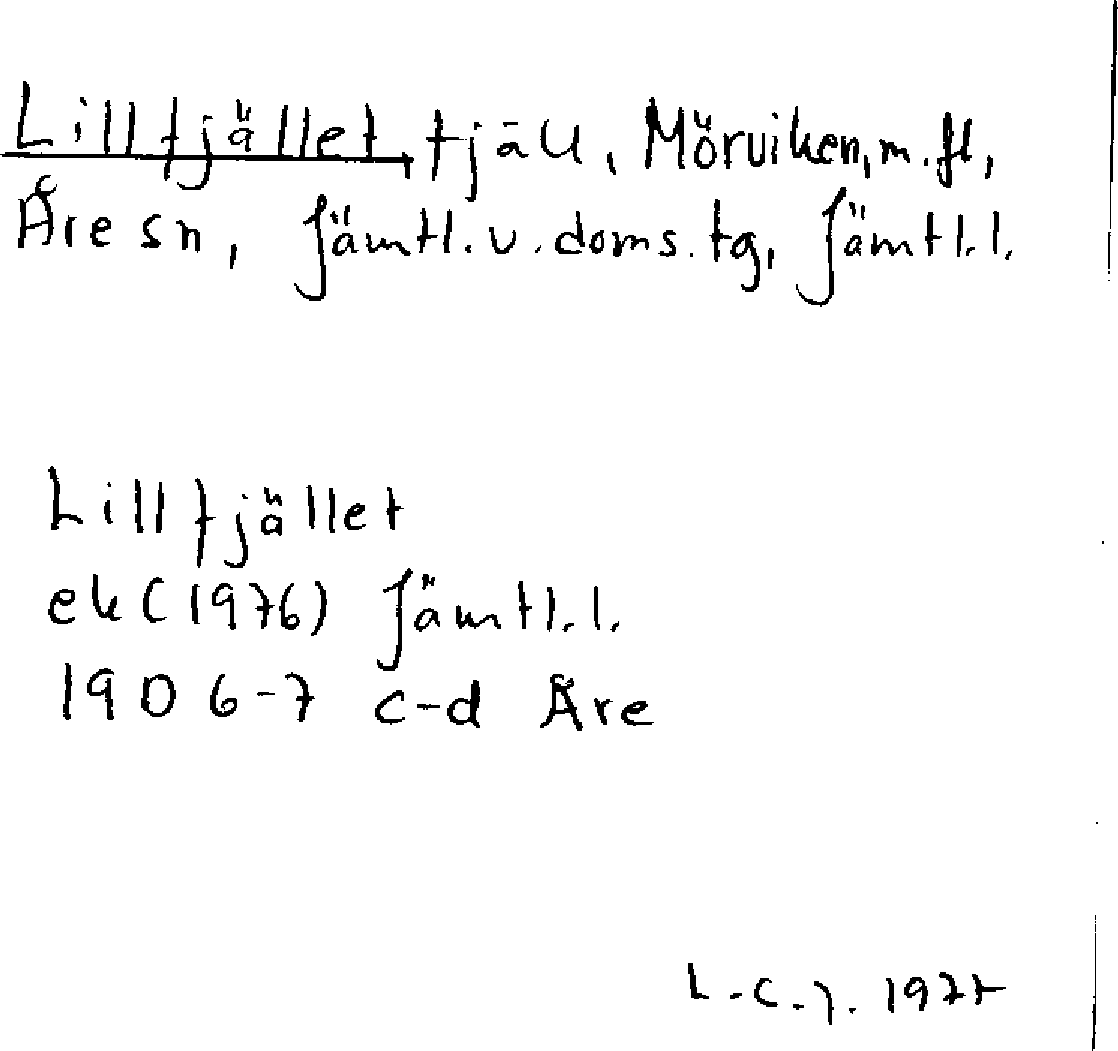 Lillfjället, fjäll, Mörviken, m.fl,
Åre sn, Jämtl. v. doms. tg, Jämtl. l.
Lillfjället
ek (1976) Jämtl. l.
19D 6-7 c-d Åre
L.-C. J.